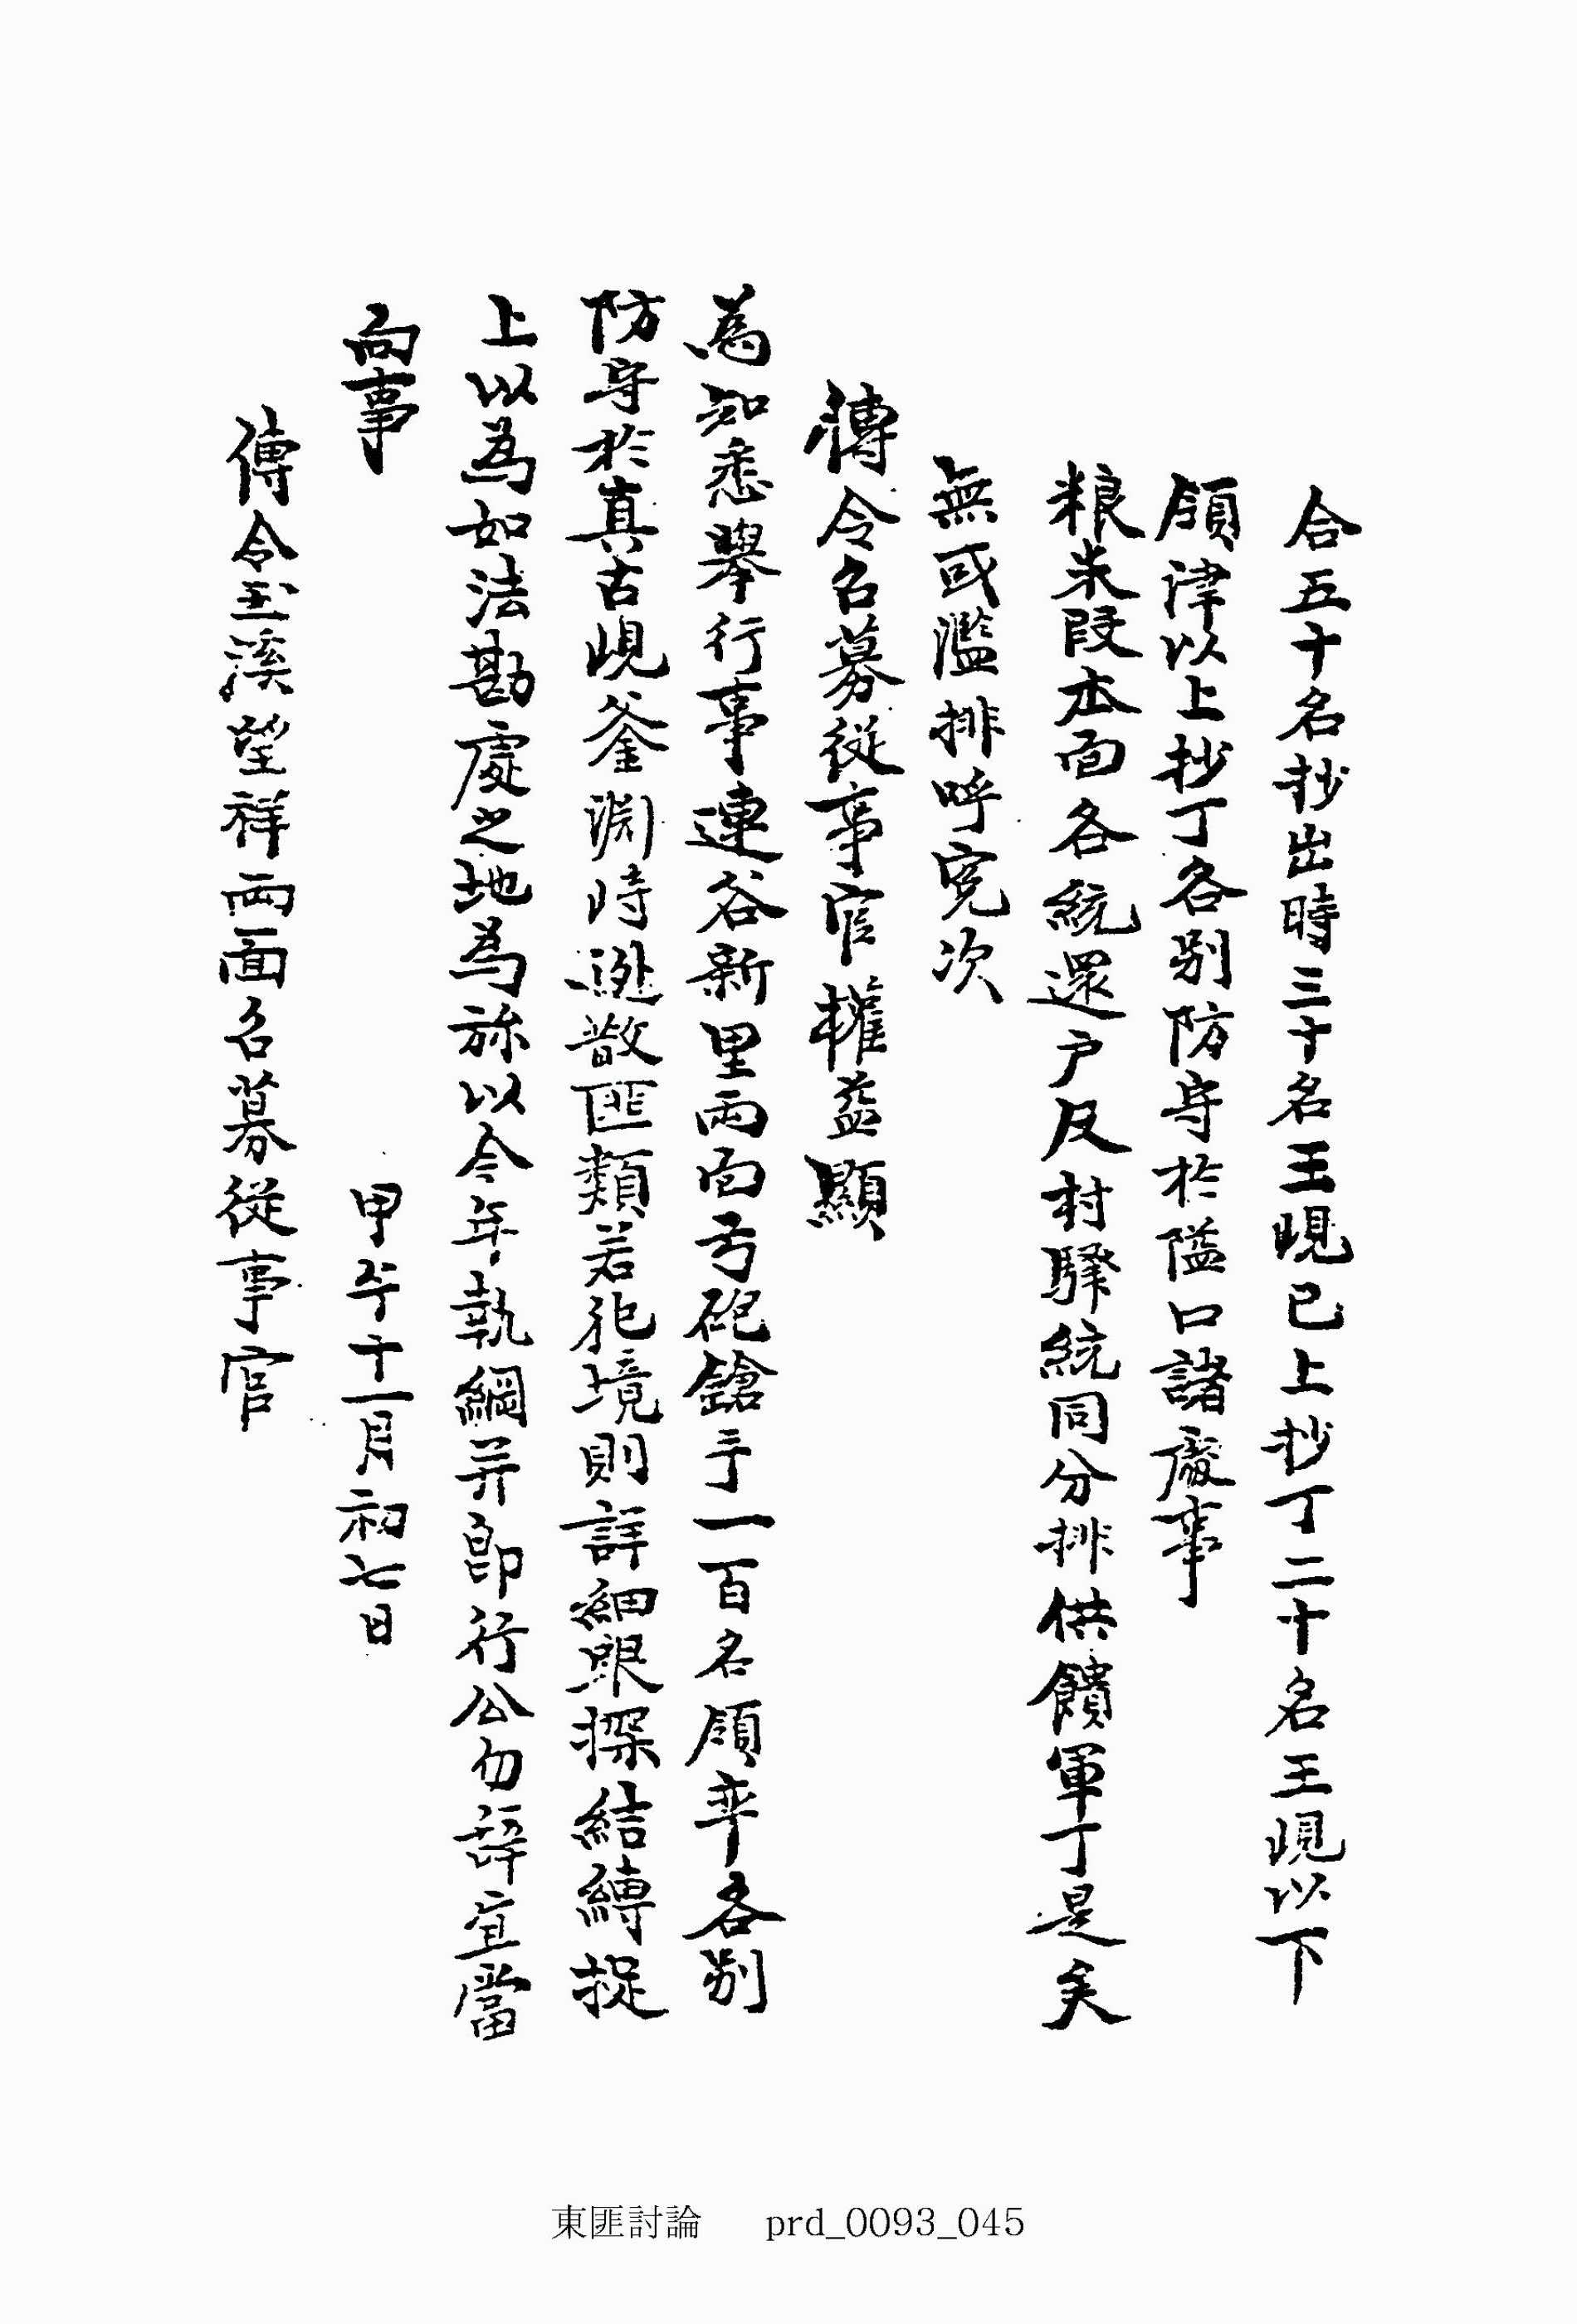 合五十名抄出時三十名王峴已上抄丁二十名王峴以下
領津以上抄丁各別防守於隘口諸處事
粮米段本面各統還戶及村驛統同分排供饋軍丁是矣
無或濫排呼寃次
傳令召募從事官權益顯
為知悉擧行事連谷新里兩面弓砲鎗手一百名領率各別
防守於真古峴釜淵時逃散匪類若犯境則詳細跟探結縛捉
上以為如法勘處之地為旀以今年執綱并即行公勿辭宜當
向事
甲午十一月初七日
傳令玉溪望祥兩面召募從事官
東匪討論 prd_0093_045